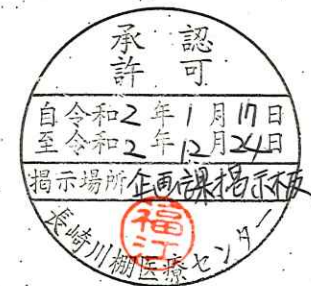 承認
許可
自令和2年1月17日
至令和2年12月24日
掲示場所企画課掲示板
福江
長崎川棚医療センター